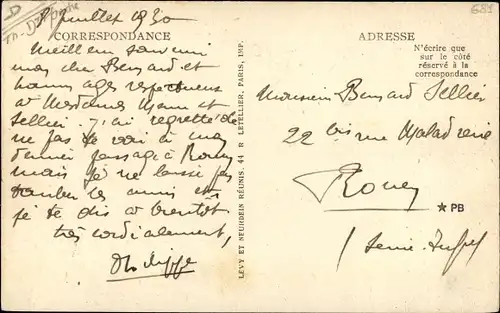 D
8 juillet 1930
CORRESPONDANCE
Meilleur souvenir
mon cher Bernard et
hommages respectueux
à Mesdames et
Sellier. J'ai regretté de
ne pas te voir à mon
dernier passage à Rouen
mais je ne laisse pas
tomber les amis et
je te dis à bientôt
très cordialement,
Philippe
LEVY ET NEURDEIN RÉUNIS, 44 R LETELLIER, PARIS, IMP.
ADRESSE
N'écrire que
sur le côté
réservé à la
correspondance
Monsieur Bernard Sellier
22 bis rue Maladrerie
Rouen
★ PB
(Seine-Infre)